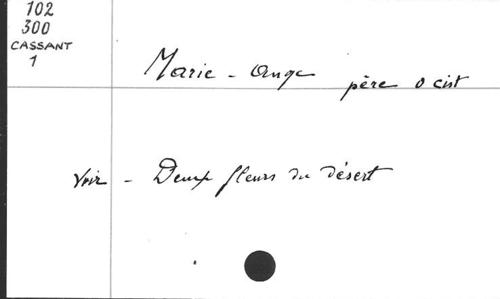 102
300
CASSANT
1
Marie - Ange père o cist
Voir - Deux fleurs du désert